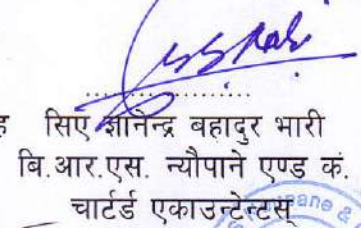 सिए ज्ञानेन्द्र बहादुर भारी
बि.आर.एस. न्यौपाने एण्ड कं.
चार्टर्ड एकाउन्टेन्टस्